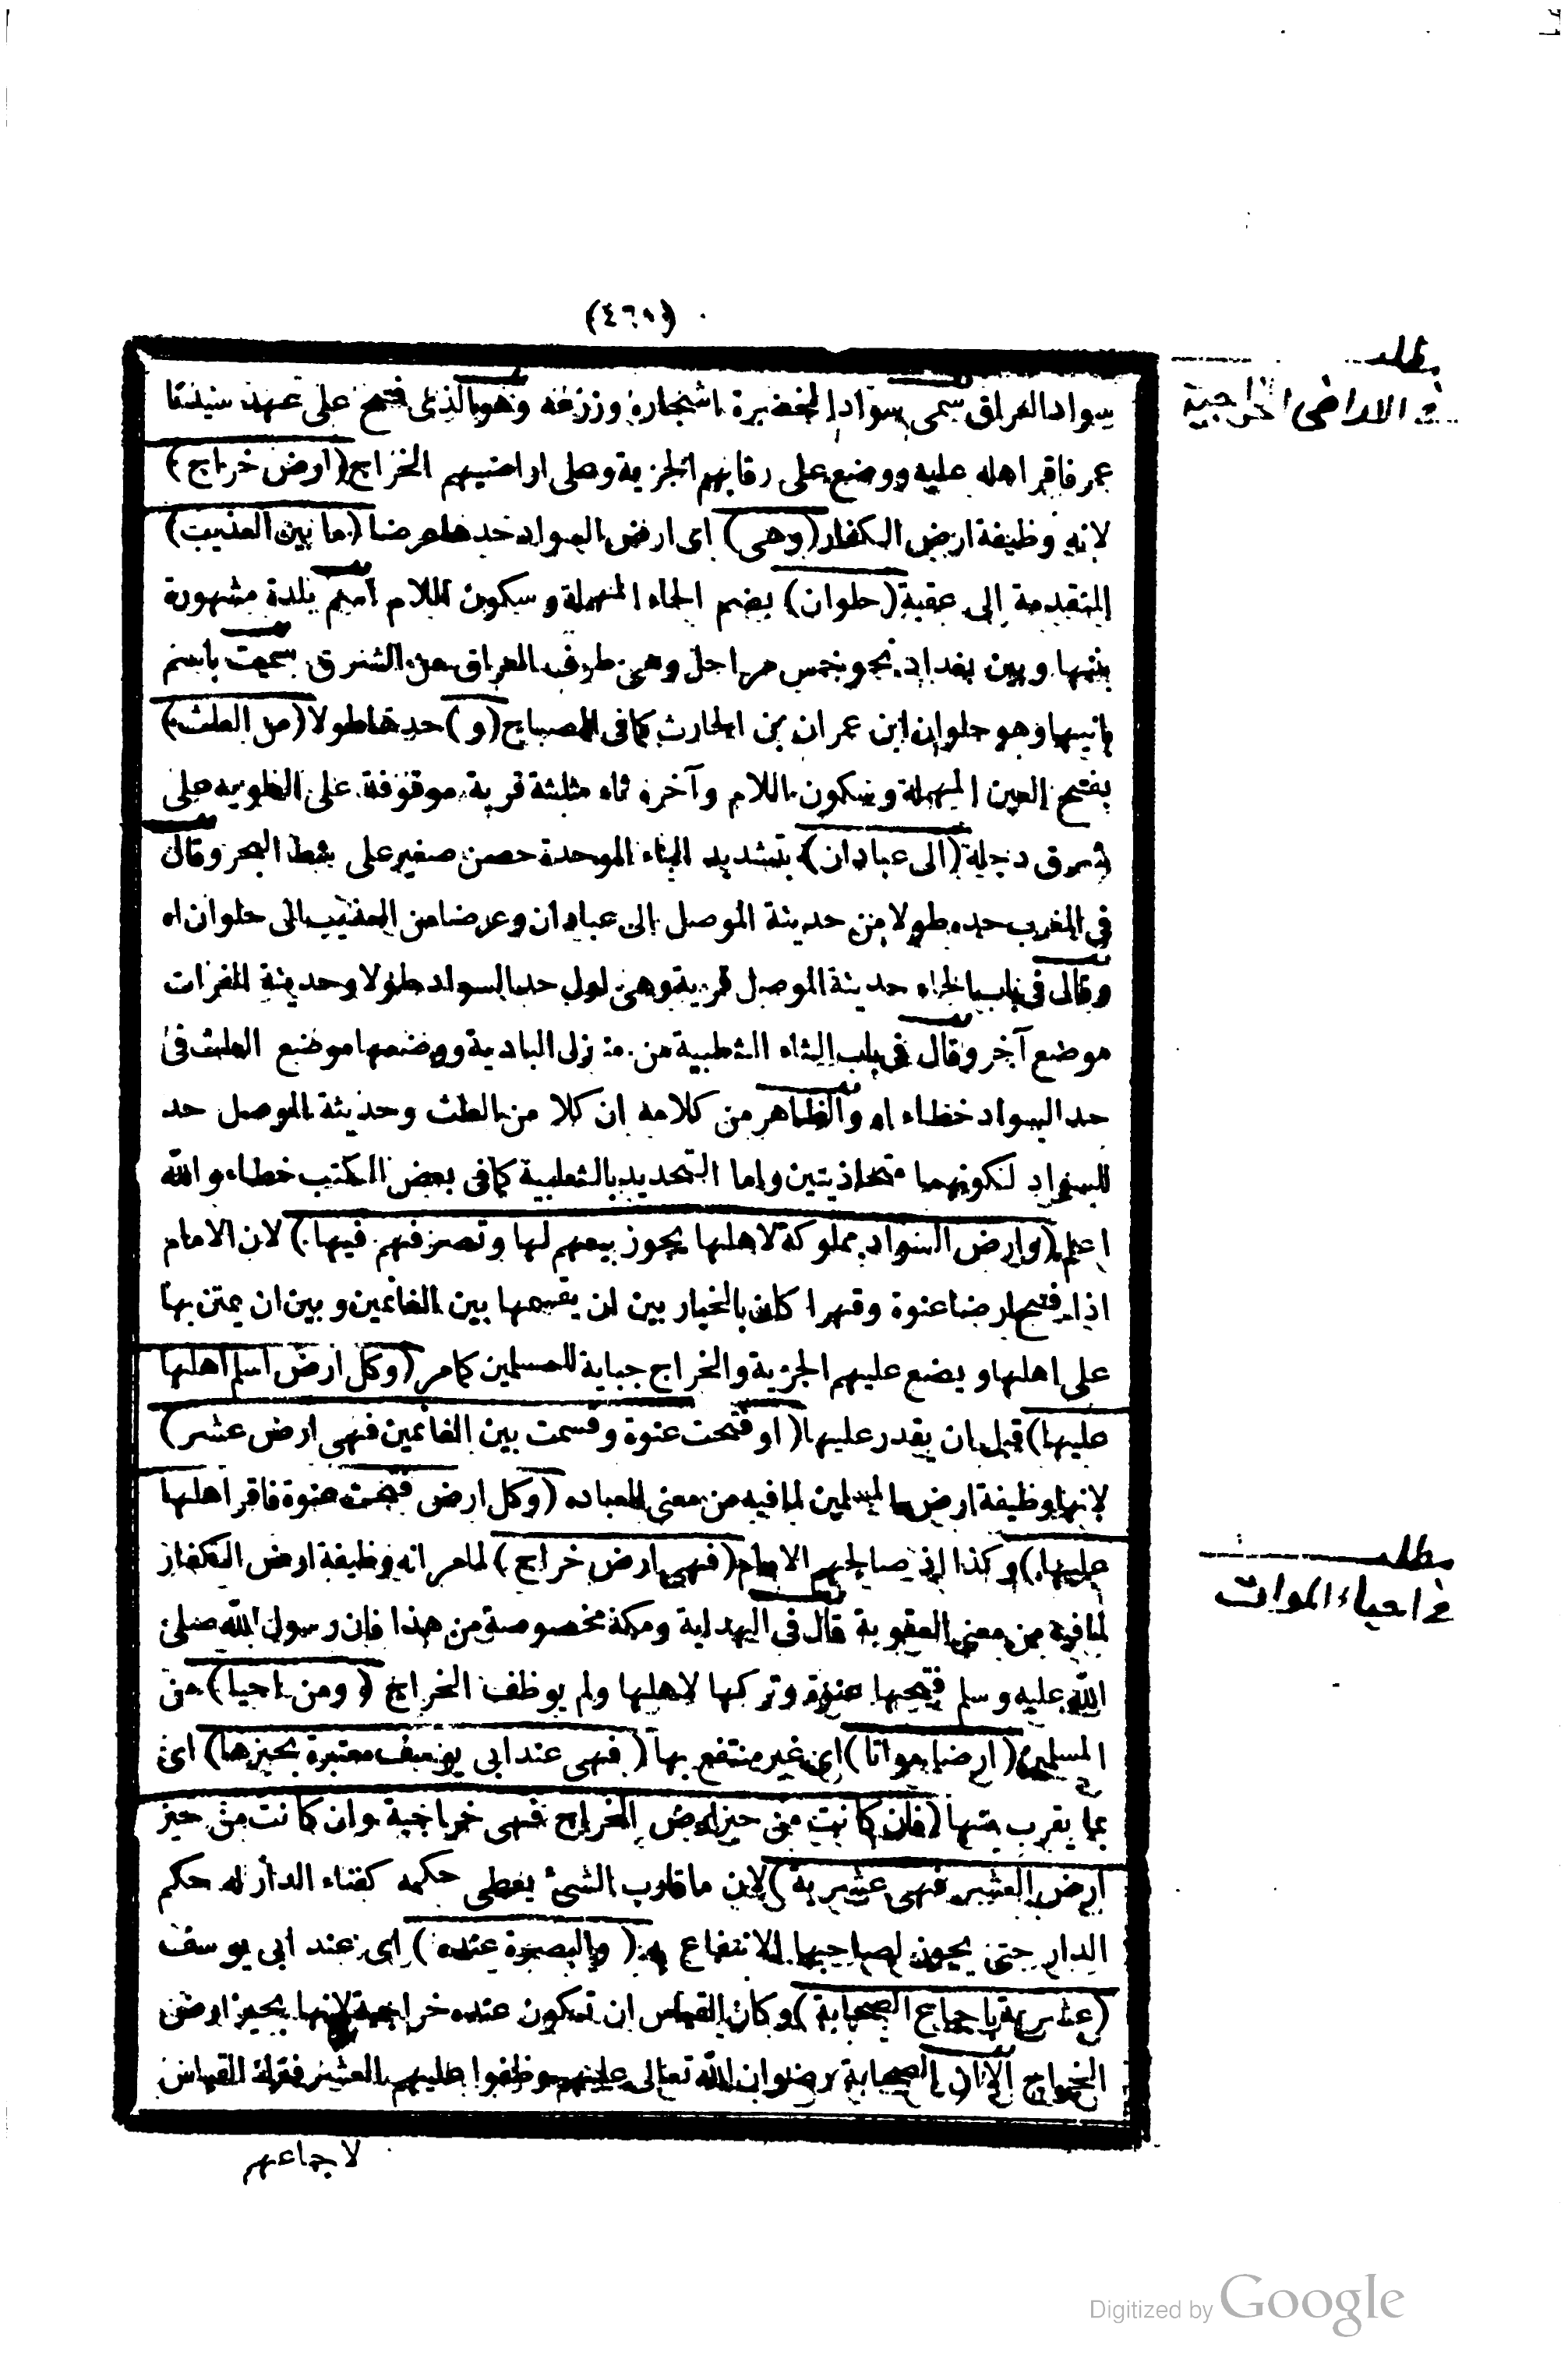 (٤٦٠)
مطلب
في الاراضى الخراجية
سواد العراق سمى سوادا لخضرة اشجاره وزرعه وهو الذى فتح على عهد سيدنا
عمر فاقر اهله عليه ووضع على رقابهم الجزية وعلى اراضيهم الخراج (ارض خراج)
لانه وظيفة ارض الكفار (وهى) اى ارض السواد حدها عرضا (ما بين العذيب)
المتقدمة الى عقبة (حلوان) بضم الحاء المهملة وسكون اللام اسم بلدة مشهورة
بينها وبين بغداد نحو خمس مراحل وهى طرف العراق من الشرق سميت باسم
بانيها وهو حلوان ابن عمران بن الحارث كما فى المصباح (و) حدها طولا (من العلث)
بفتح العين المهملة وسكون اللام وآخره ثاء مثلثة قرية موقوفة على العلوية على
شرق دجلة (الى عبادان) بتشديد الباء الموحدة حصن صغير على شط البحر وقال
فى المغرب حده طولا من حديثة الموصل الى عبادان وعرضا من العذيب الى حلوان اه
وقال فى باب الحاء حديثة الموصل قرية وهى اول حد السواد طولا وحديثة الفرات
موضع آخر وقال فى باب الثاء الثعلبية من منزل البادية ووضعها موضع العلث فى
حد السواد خطاء اه والظاهر من كلامه ان كلا من العلث وحديثة الموصل حد
للسواد لكونهما متحاذيتين واما التحديد بالثعلبية كما فى بعض الكتب خطاء والله
اعلم (وارض السواد مملوكة لاهلها يجوز بيعهم لها وتصرفهم فيها) لان الامام
اذا فتح ارضا عنوة وقهرا كان بالخيار بين ان يقسمها بين الغانمين وبين ان يمتن بها
على اهلها ويضع عليهم الجزية والخراج جباية للمسلمين كما مر (وكل ارض اسلم اهلها
عليها) قبل ان يقدر عليها (او فتحت عنوة وقسمت بين الغانمين فهى ارض عشر)
لانها وظيفة ارض المسلمين لما فيه من معنى العباده (وكل ارض فتحت عنوة فاقر اهلها
عليها) وكذا اذ صالحهم الامام (فهى ارض خراج) لما مر انه وظيفة ارض الكفار
مطلب
في احياء الموات
لما فيه من معنى العقوبة قال فى الهداية ومكة مخصوصة من هذا فان رسول الله صلى
الله عليه وسلم فتحها عنوة وتركها لاهلها ولم يوظف الخراج (ومن احيا) من
المسلمين (ارضا مواتا) اى غير منتفع بها (فهى عند ابى يوسف معتبرة بحيزها) اى
بما يقرب منها (فان كانت من حيز ارض الخراج فهى خراجية وان كانت من حيز
ارض العشر فهى عشرية) لان ما قارب الشئ يعطى حكمه كفناء الدار له حكم
الدار حتى يجوز لصاحبها الانتفاع به (والبصرة عنده) اى عند ابى يوسف
(عشرية باجماع الصحابة) وكان القياس ان تكون عنده خراجية لانها بحيز ارض
الخراج الا ان الصحابة رضوان الله تعالى عليهم وظفوا عليهم العشر فترك القياس
لاجماعهم
Digitized by Google